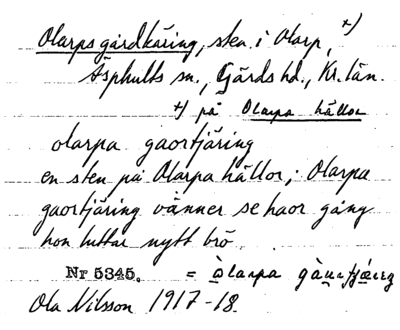 Olarps gårdkäring, sten i Olarp, x)
Äsphults sn., Gärds hd., Kr. län.
x) på Olarpa hällor
olarpa gaortjäring
en sten på Olarpa hällor; Olarpa
gaortjäring vänner se haor gång
hon luttar nytt brö.
Nr 5345. = olarpa
Ola Nilsson 1917-18.